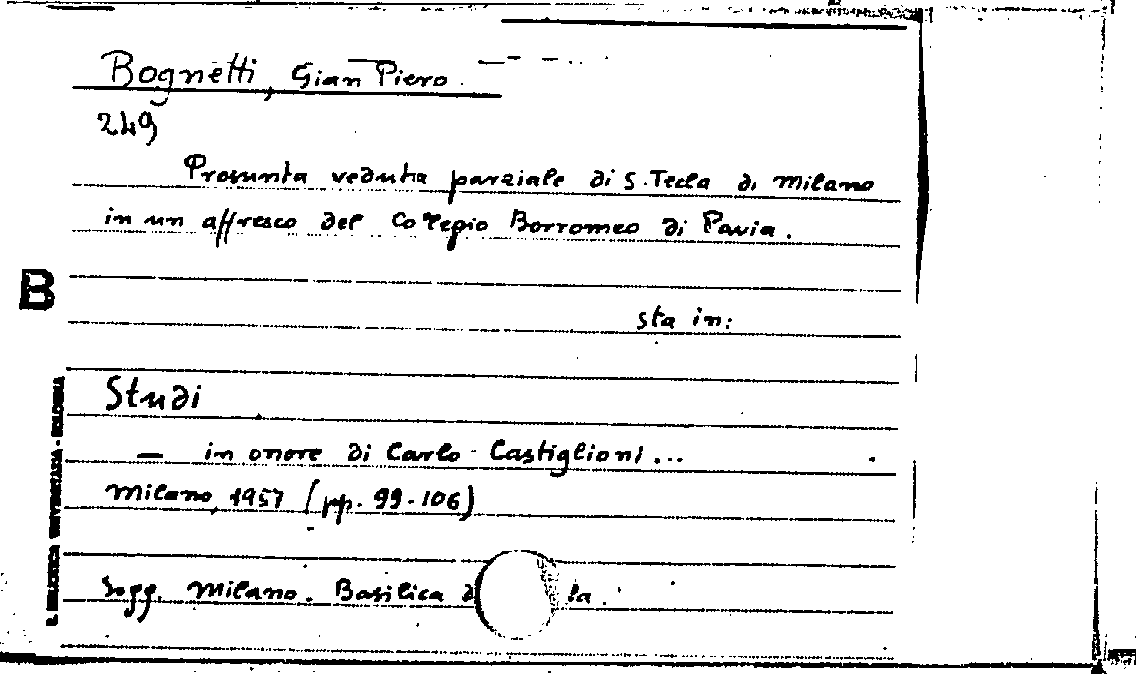 Bognetti, Gian Piero.
249
Presunta veduta parziale di S. Tecla di Milano
in un affresco del Collegio Borromeo di Pavia.
B
sta in:
Studi
— in onore di Carlo Castiglioni...
Milano, 1957 (pp. 99-106)
Sogg. Milano. Basilica d la.
R. BIBLIOTECA UNIVERSITARIA - BOLOGNA